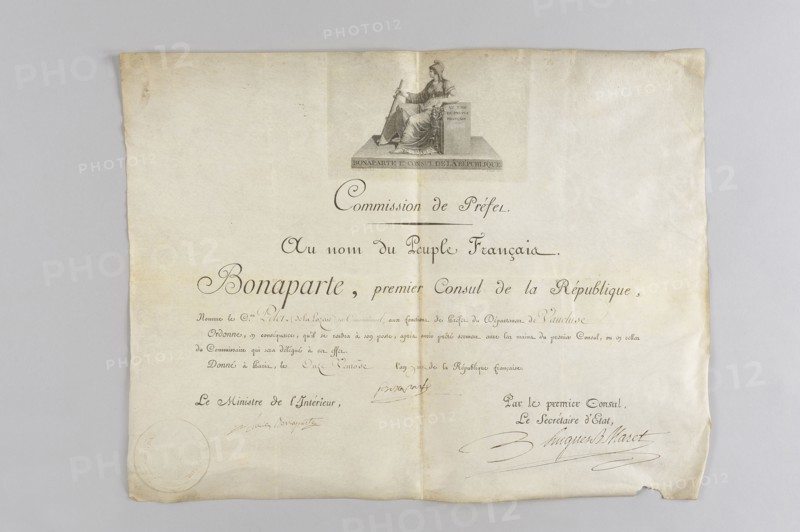 AU NOM
DU PEUPLE
FRANÇAIS
BONAPARTE 1er CONSUL DE LA REPUBLIQUE
Commission de Préfet.
Au nom du Peuple Français.
Bonaparte, premier Consul de la République,
Nomme le Cen Pelet de la Lozère aux fonctions de Préfet du Département de Vaucluse
Ordonne, en conséquence, qu'il se rendra à son poste, après avoir prêté serment, entre les mains du premier Consul, ou en celles
du Commissaire qui sera délégué à cet effet.
Donné à Paris, le Onze Ventôse l'an de la République française.
Bonaparte
Le Ministre de l'Intérieur,
Lucien Bonaparte
Par le premier Consul.
Le Secrétaire d'Etat,
Hugues B. Maret
PHOTO12